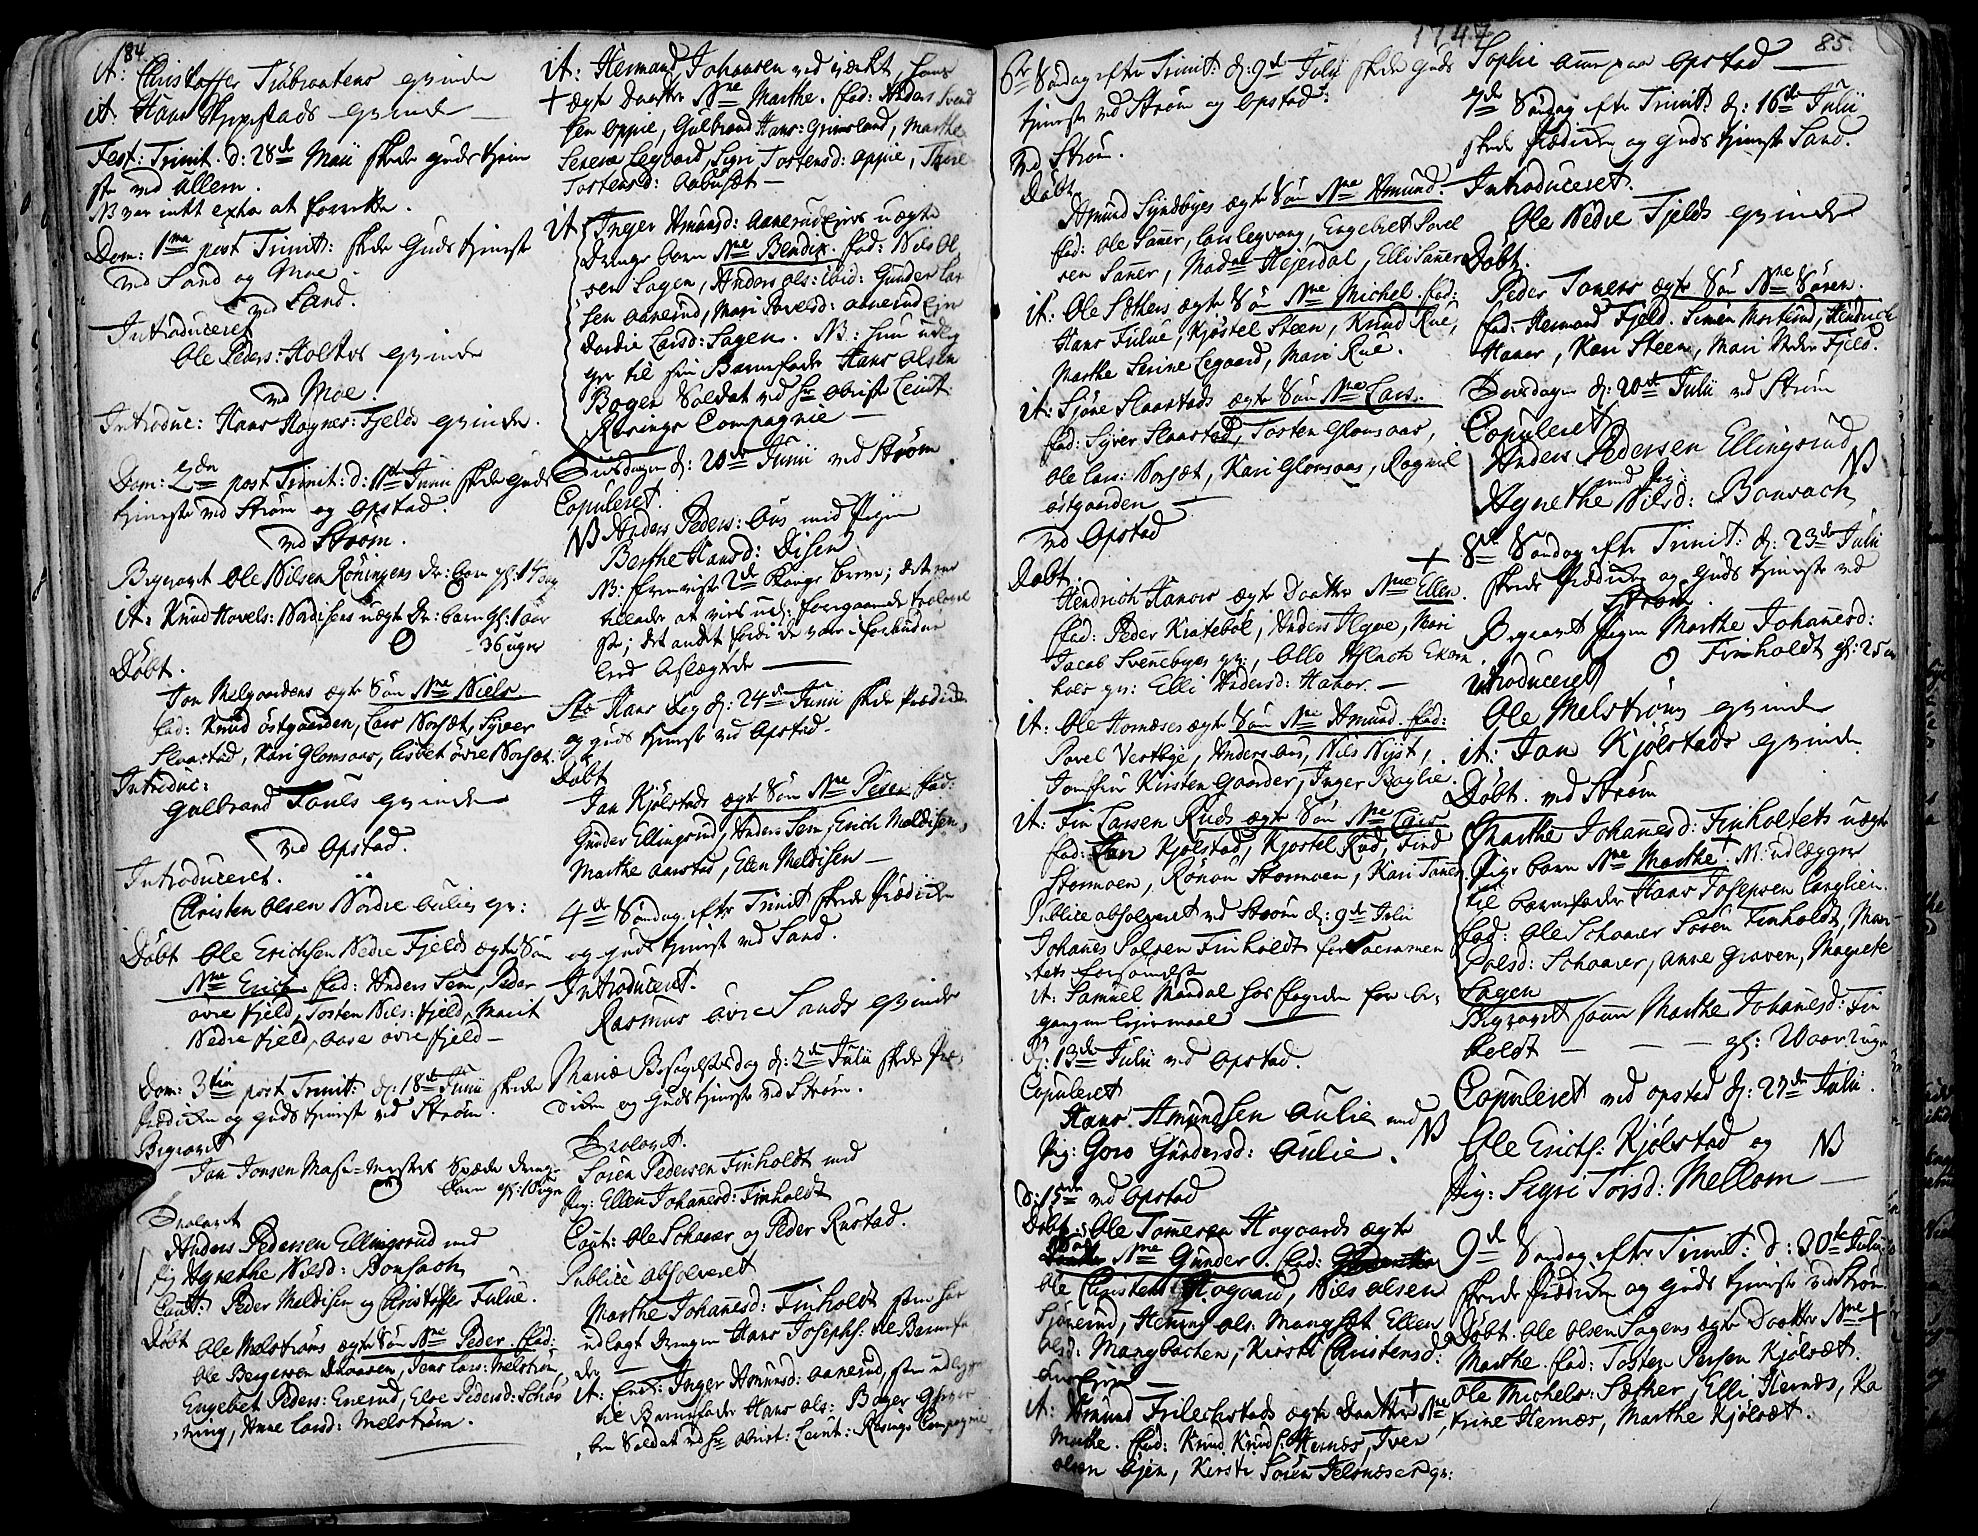 84.
it: Christoffer Tubraatens qvinde
it: Hans Skypestads qvinde
Fest: Trinit. d: 28de Maii skede guds tjene
ste ved Ullern.
NB var intet extra at forrette.
Dom: 1ma post Trinit: skede Guds tjenste
ved Sand og Moe.
ved Sand.
Introduceret
Ole Peders: Holters qvinde
ved Moe.
Introduc: Hans Hagnes: Fjelds qvinde.
Dom: 2da post Trinit: d: 11te Junii skede guds
tjenste ved Strøm og Opstad.
ved Strøm.
Begravet Ole Nilsen Røningens dr: barn gl: 14 dag
it: Knud Havels: Nordisens uægte Dr: barn gl: 1 aar
36 uger
Døbt.
Jon Melgaardens ægte Søn Nne Niels
fad: Knud Østgaarden, Lars Norsæt, Syver
Slaastad, Kari Glomsaas, Lisbet øvre Norsæt.
Introduc:
Gulbrand Fouls qvinde
ved Opstad.
Introduceret.
Christen Olsen Nordre Aulies qv:
Døbt Ole Erichsen Nedre Fjelds ægte Søn
Nne Erich fad: Anders Sem, Peder
øvre Fjeld, Tosten Nils: Fjeld, Marit
Nedre Fjeld, Aase øvre Fjeld
Dom: 3tia post Trinit: d: 18de Junii skede
Prædiken og guds tjenste ved Strøm.
Begravet
Jan Jonsen Masu-mesters Spæde drenge
barn gl: 10 uger
Trolovet
Anders Pedersen Ellingsrud med
Pig Agnethe Nilsd: Bonsach
Caut: Peder Meldisen og Christoffer Fulue.
Døbt Ole Melstrøms ægte Søn Nne Peder fad:
Ole Bergersen, Jons Lars: Melstrøm,
Engebet Peders: Enerud, Else Pedersd: Schøs
ning, Anne Larsd: Melstrøm.
it: Hermand Johansen ved værket, hans
+ ægte Daatter Nne Marthe. fad: Anders Svend
sen Oppie, Gulbrand Hans: Grimsland, Marthe
Serene Legaard, Sigri Tostensd: Oppie,
Tostensd: Aabusæt
it Inger Amunsd: Aanerud Eiers uægte
Drenge barn Nne Bendix. fad: Nils Ol
sen Sagen, Anders Ols: ibid: Gunder Lar
sen Aanerud, Mari Povelsd: Aanerud Eier
Dordie Larsd: Sagen. NB: hun udlæg
ger til sin Barnefader Hans Olsen
Boger Soldat ved Hr Obrist Leut
Rosings Compagnie
Tirsdagen d: 20de Junii ved Strøm
Copuleret.
NB Anders Peders: Aas med Pigen
Berthe Hansd: Disen
NB: fremviste 2de Kongs breve; det ene
tillader at vies ud: foregaaende trolovel
se; det andet fordi de vare i forbudne
Led beslægtede
Sto Hans dag d: 24de Junii skede Prædiken
og guds tjenste ved Opstad.
Døbt
Jan Kjølstads ægte Søn Nne Peder fad:
Gunder Ellingsrud, Anders Sem, Erich Meldisen,
Marthe Aarstad, Elen Meldisen
4de Søndag efter Trinit skede Prædiken
og guds tjenst ved Sand.
Introduceret.
Rasmus øvre Sands qvinde
Mariæ Besøgelsesdag d: 2de Julii skede Præ
diken og guds tjenste ved Strøm.
Trolovet.
Soren Pedersen Finholdt med
Pig: Ellen Johannesd: Finholdt
Caut: Ole Schaarer og Peder Rustad.
Publicè absolveret
Marthe Johannesd: Finholdt som har
udlagt drengen Hans Josephs: til Barnefa
der
it: Inger Amunsd: Aanerud, som udlægger
til Barnefader Hans Ols: Boger
ben Soldat ved Hr Obrist: Leut: Rosings Compagnie
1747
85.
6te Søndag efter Trinit: d: 9de Julii skede guds
tjenste ved Strøm og Opstad:
ved Strøm.
Døbt
Amund Syndbyes ægte Søn Nne Amund.
fad: Ole Saner, Lars Legvang, Engebret Povel
sen Saner, Madme Hejerdal, Elli Saner
it: Ole Sæthers ægte Søn Nne Michel. fad:
Hans Fulue, Kjøstel Steen, Knud Rue,
Marthe Serine Legaard, Mari Rue.
it: Sjøne Slaastads ægte Søn Nne Lars.
fad: Syver Slaastad, Tosten Glomsaas,
Ole Lars: Norsæt, Kari Glomsaas, Ragnil
østgaarden
ved Opstad
Døbt +
Hendrich Hanors ægte Daatter Nne Ellen.
fad: Peder Kratebøl, Anders Algue, Mari
Jacob Svennebyes qv:,
hols qv: Elli Andersd: Hanor.
it: Ole Hornæses ægte Søn Nne Amund. fad:
Povel Vestbye, Anders Aas, Nils Nyst,
Jomfru Kirsten Gaarder, Inger Boglie.
it: Fin Larsen Ruds ægte Søn Nne Lars
fad: Jan Kjølstad, Kjostel Rud, Find
Stormoen, Rønau Stormoen, Kari Tanes.
Publicè absolveret ved Strøm d: 9de Julii
Johanes Polsen Finholdt for Sacramen
tets forsømelse
it: Samuel Mandal hos fogden for be
gangen lejermaal
d: 13de Julii ved Opstad.
Copuleret
Hans Amundsen Aulie med
NB
Pig: Goro Gundersd: Aulie.
d: 15de ved Opstad
Døbt: Ole Tomesen Hogaards ægte
Søn Nne Gunder. fad:
Ole Christens: Hogaard, Nils Olsen
Sjonerud, Hening Ols: Mangsæt Ellen
Olsd: Mangbachen, Kirsti Christensd:
it: Amund Frilechstads ægte Daatter Nne +
Marthe. fad: Knud Knuds: Hernæs, Iver
Olsen Ejen, Kersti Soren Jelsnæses qv:
Sophi Aum paa Opstad
7de Søndag efter Trinit: d: 16de Julii
skede Prædiken og guds tjenste Sand.
Introduceret.
Ole Nedre Fjelds qvinde
Døbt.
Peder Toners ægte Søn Nne Søren.
fad: Hermand Fjeld. Simen Morterud, Hendrich
Hanor, Kari Steen, Mari Nedre Fjeld.
Torsdagen d: 20de Julii ved Strøm
Copuleret
Anders Pedersen Ellingsrud
med Pig: NB
Agnethe Nilsd: Bonsach
8de Søndag efter Trinit: d: 23de Julii
skede Prædiken og guds tjenste ved
Strøm.
Begravet Pigen Marthe Johanesd:
Finholdt gl: 25 aar
Introduceret
Ole Melstrøms qvinde
it: Jan Kjølstads qvinde
Døbt. ved Strøm
Marthe Johanesd: Finholtets uægte
Pige barn Nne Marthe +. NB: udlægger
til barnefader Hans Josepsen Langlien.
fad: Ole Schaarer Soren Finholdt, Mari
Polsd: Schaarer, Anne Graven, Magrete
Sagen
Begravet Marthe Johanesd: Fin
holdt — — — gl:
Copuleret ved Opstad d: 27de Julii.
Ole Erichs: Kjølstad og NB
Pig: Sigri Torsd: Mellom
9de Søndag efter Trinit: d: 30te Julii
skede Prædiken og guds tjenste ved Strøm
Døbt. Ole Olsen Sagens ægte Daatter Nne +
Marthe. fad: Tosten Persen Kjølsæt.
Ole Michels: Sæther, Elli Hernæs, Ka
trine Hernæs, Marthe Kjølsæt.